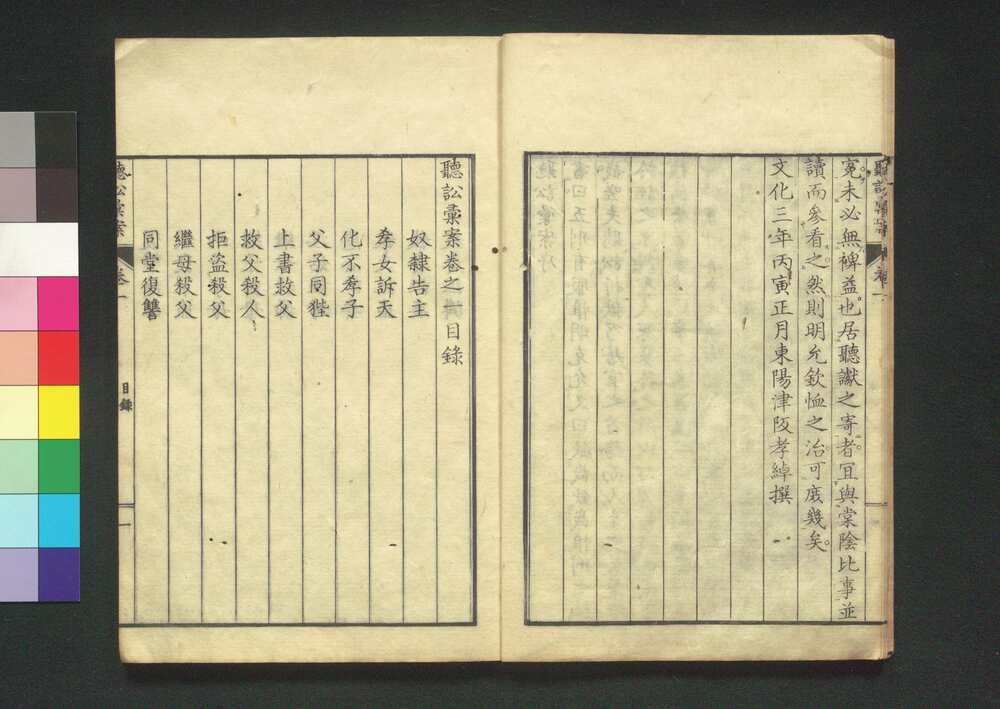 聽訟彙案
卷一
冤未必無裨益也。居聽讞之寄者。冝與棠陰比事並
讀而參看之。然則明允欽恤之治可庻幾矣。
文化三年丙寅正月東陽津阪孝綽撰
聽訟彙案卷之一目錄
奴隸告主
孝女訴天
化不孝子
父子同狴
上書救父
救父殺人
拒盜殺父
繼母殺父
同堂復讐
聽訟彙案
卷一
目錄
一